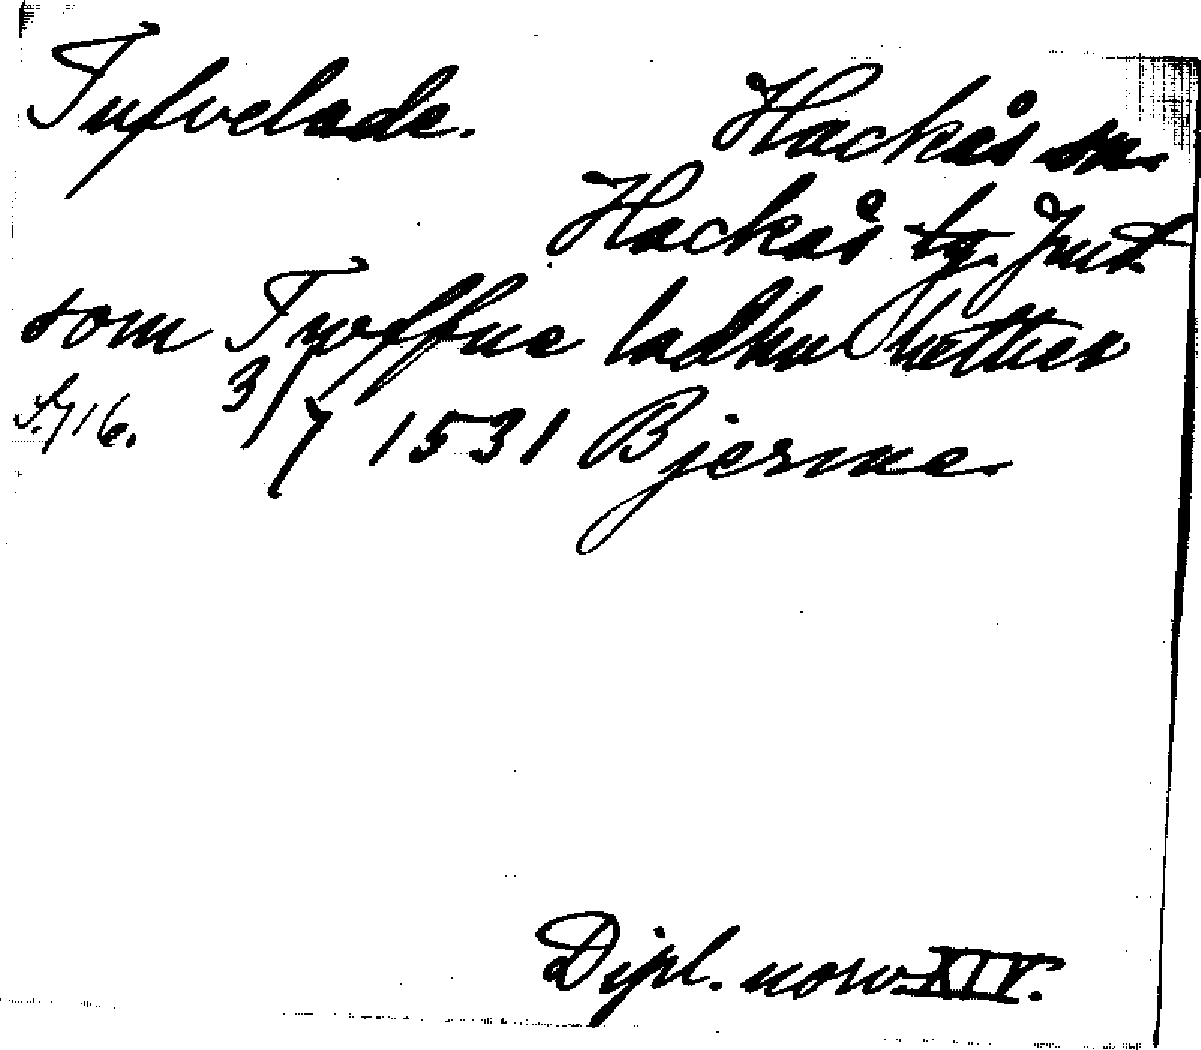 Tufvelade.
Hackås sn.
Hackås tg. Jmt.
som Twffue ladhu hetther
S. 716. 3/7 1531 Bjerme.
Dipl. norv. XIV.